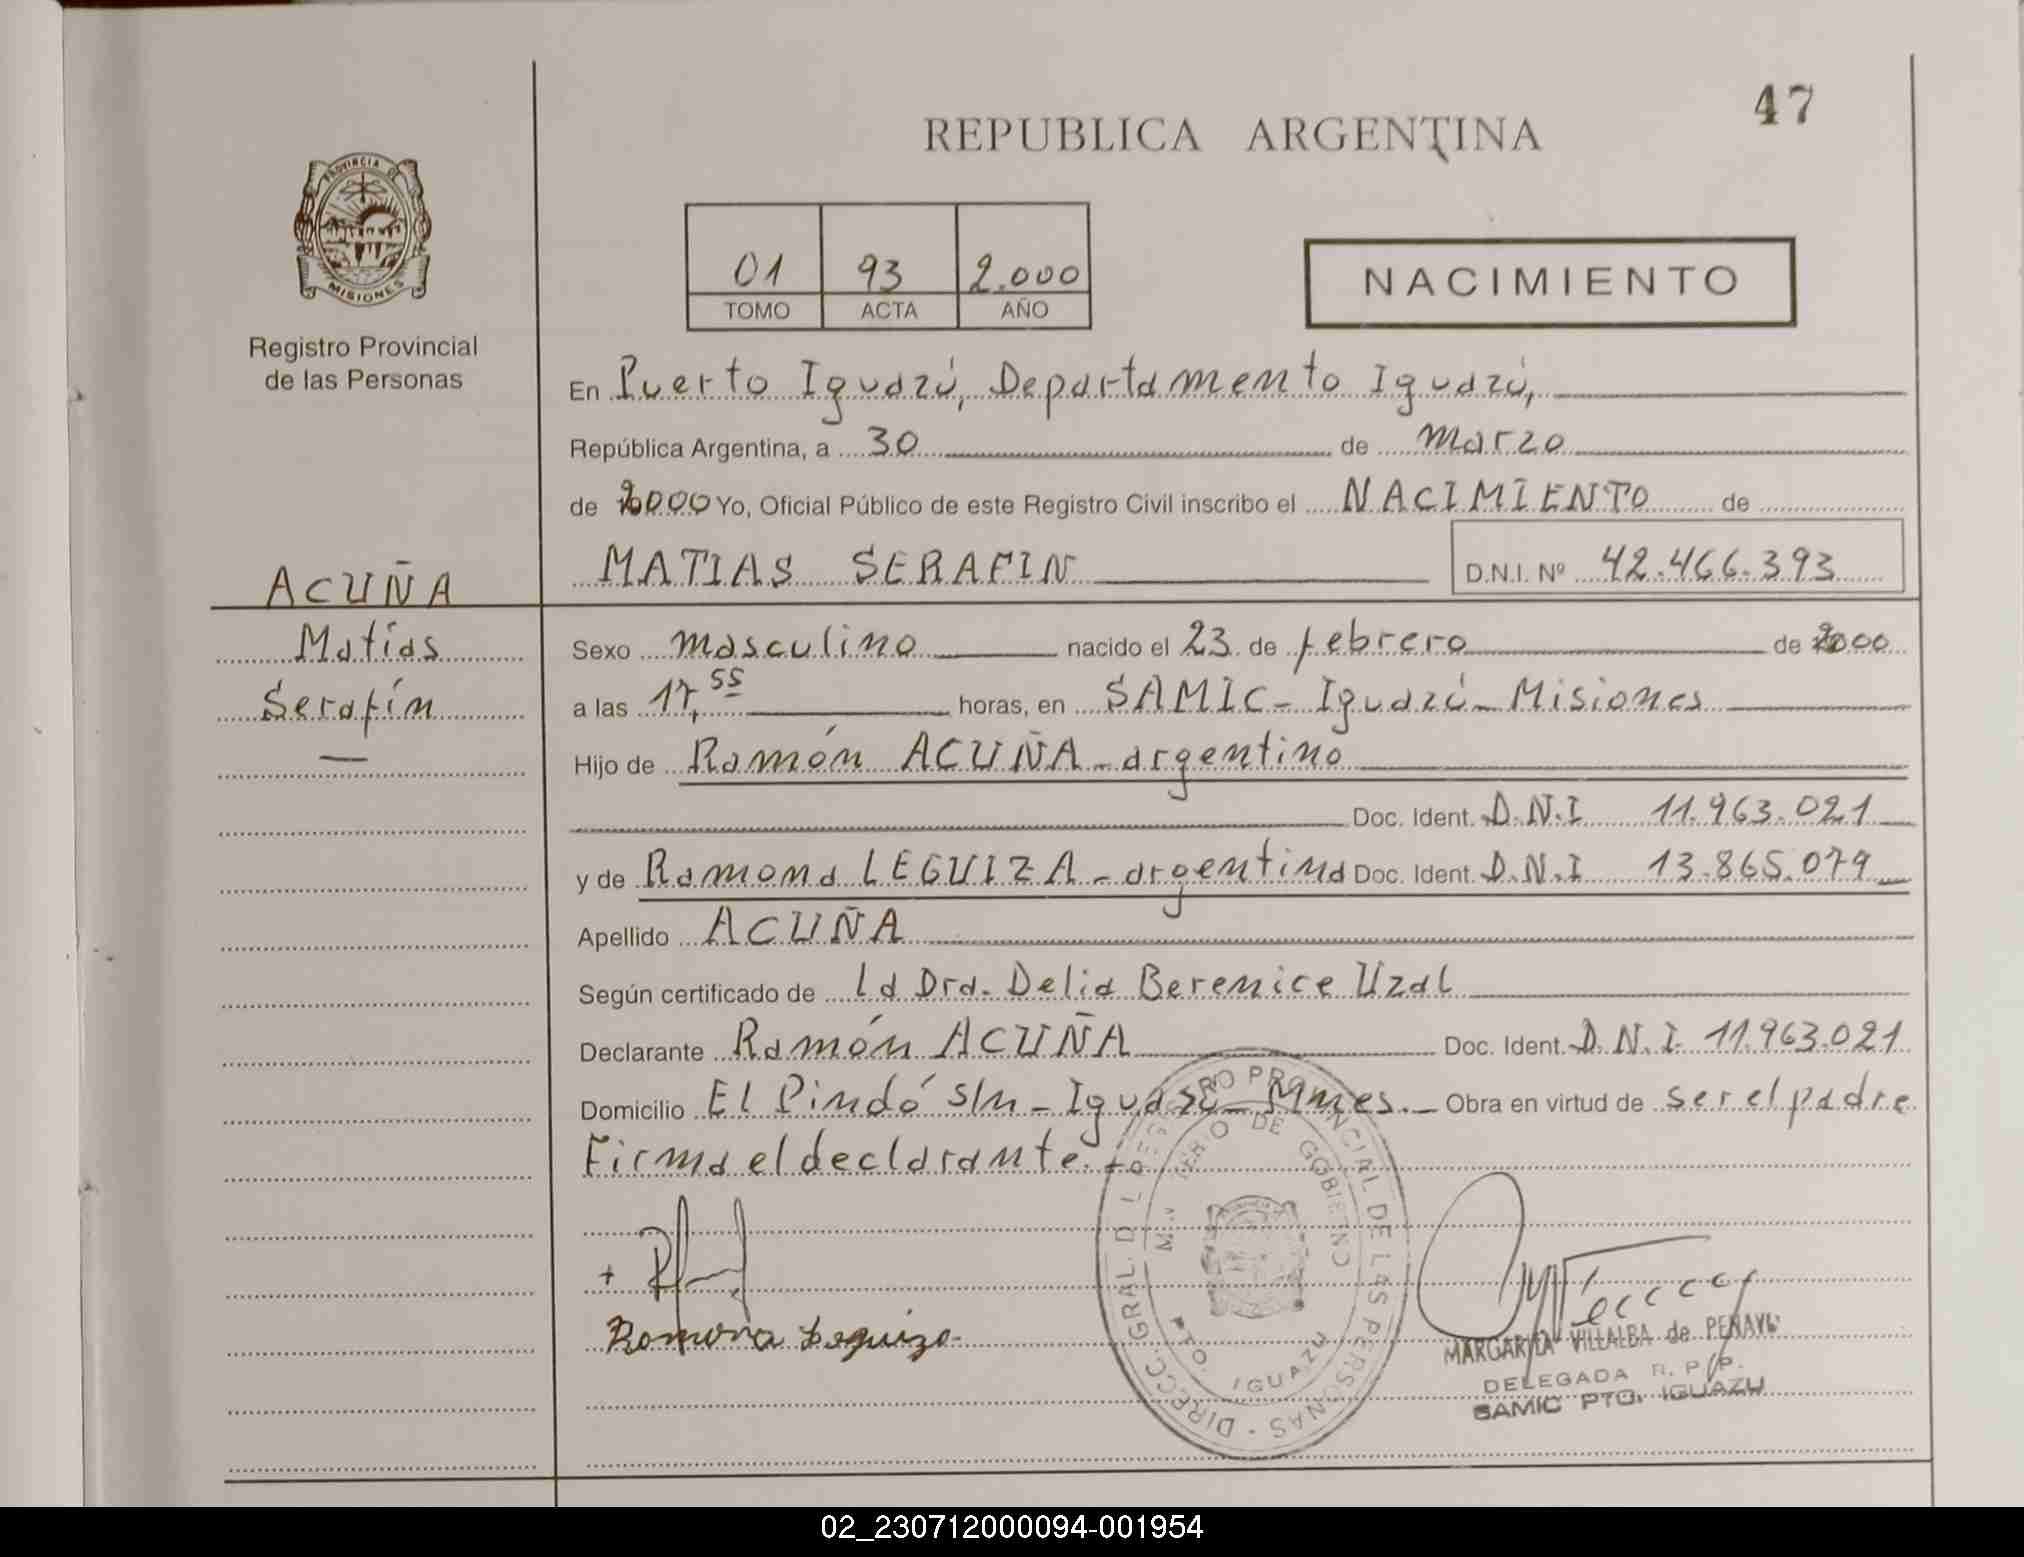 47
REPUBLICA ARGENTINA
PROVINCIA DE
MISIONES
01 93 2.000
TOMO ACTA AÑO
NACIMIENTO
Registro Provincial
de las Personas
En Puerto Iguazú, Departamento Iguazú,
República Argentina, a 30 de Marzo
de 2000 Yo, Oficial Público de este Registro Civil inscribo el NACIMIENTO de
MATIAS SERAFIN D.N.I. Nº 42.466.393
ACUÑA
Matías
Serafín
Sexo masculino nacido el 23 de febrero de 2000
a las 17,55 horas, en SAMIC - Iguazú - Misiones
Hijo de Ramón ACUÑA - argentino
Doc. Ident. D.N.I 11.963.021
y de Ramona LEGUIZA - argentina Doc. Ident. D.N.I 13.865.079
Apellido ACUÑA
Según certificado de la Dra. Delia Berenice Uzal
Declarante Ramón ACUÑA Doc. Ident. D.N.I. 11.963.021
Domicilio El Pindó s/n - Iguazú - Mnes. Obra en virtud de ser el padre
Firma el declarante.
Ramona Leguiza
DIRECC. GRAL. DEL REGISTRO PROVINCIAL DE LAS PERSONAS
MINISTERIO DE GOBIERNO
PTO. IGUAZU
MARGARITA VILLALBA de PENAYO
DELEGADA R. P. P.
SAMIC PTO. IGUAZU
02_230712000094-001954